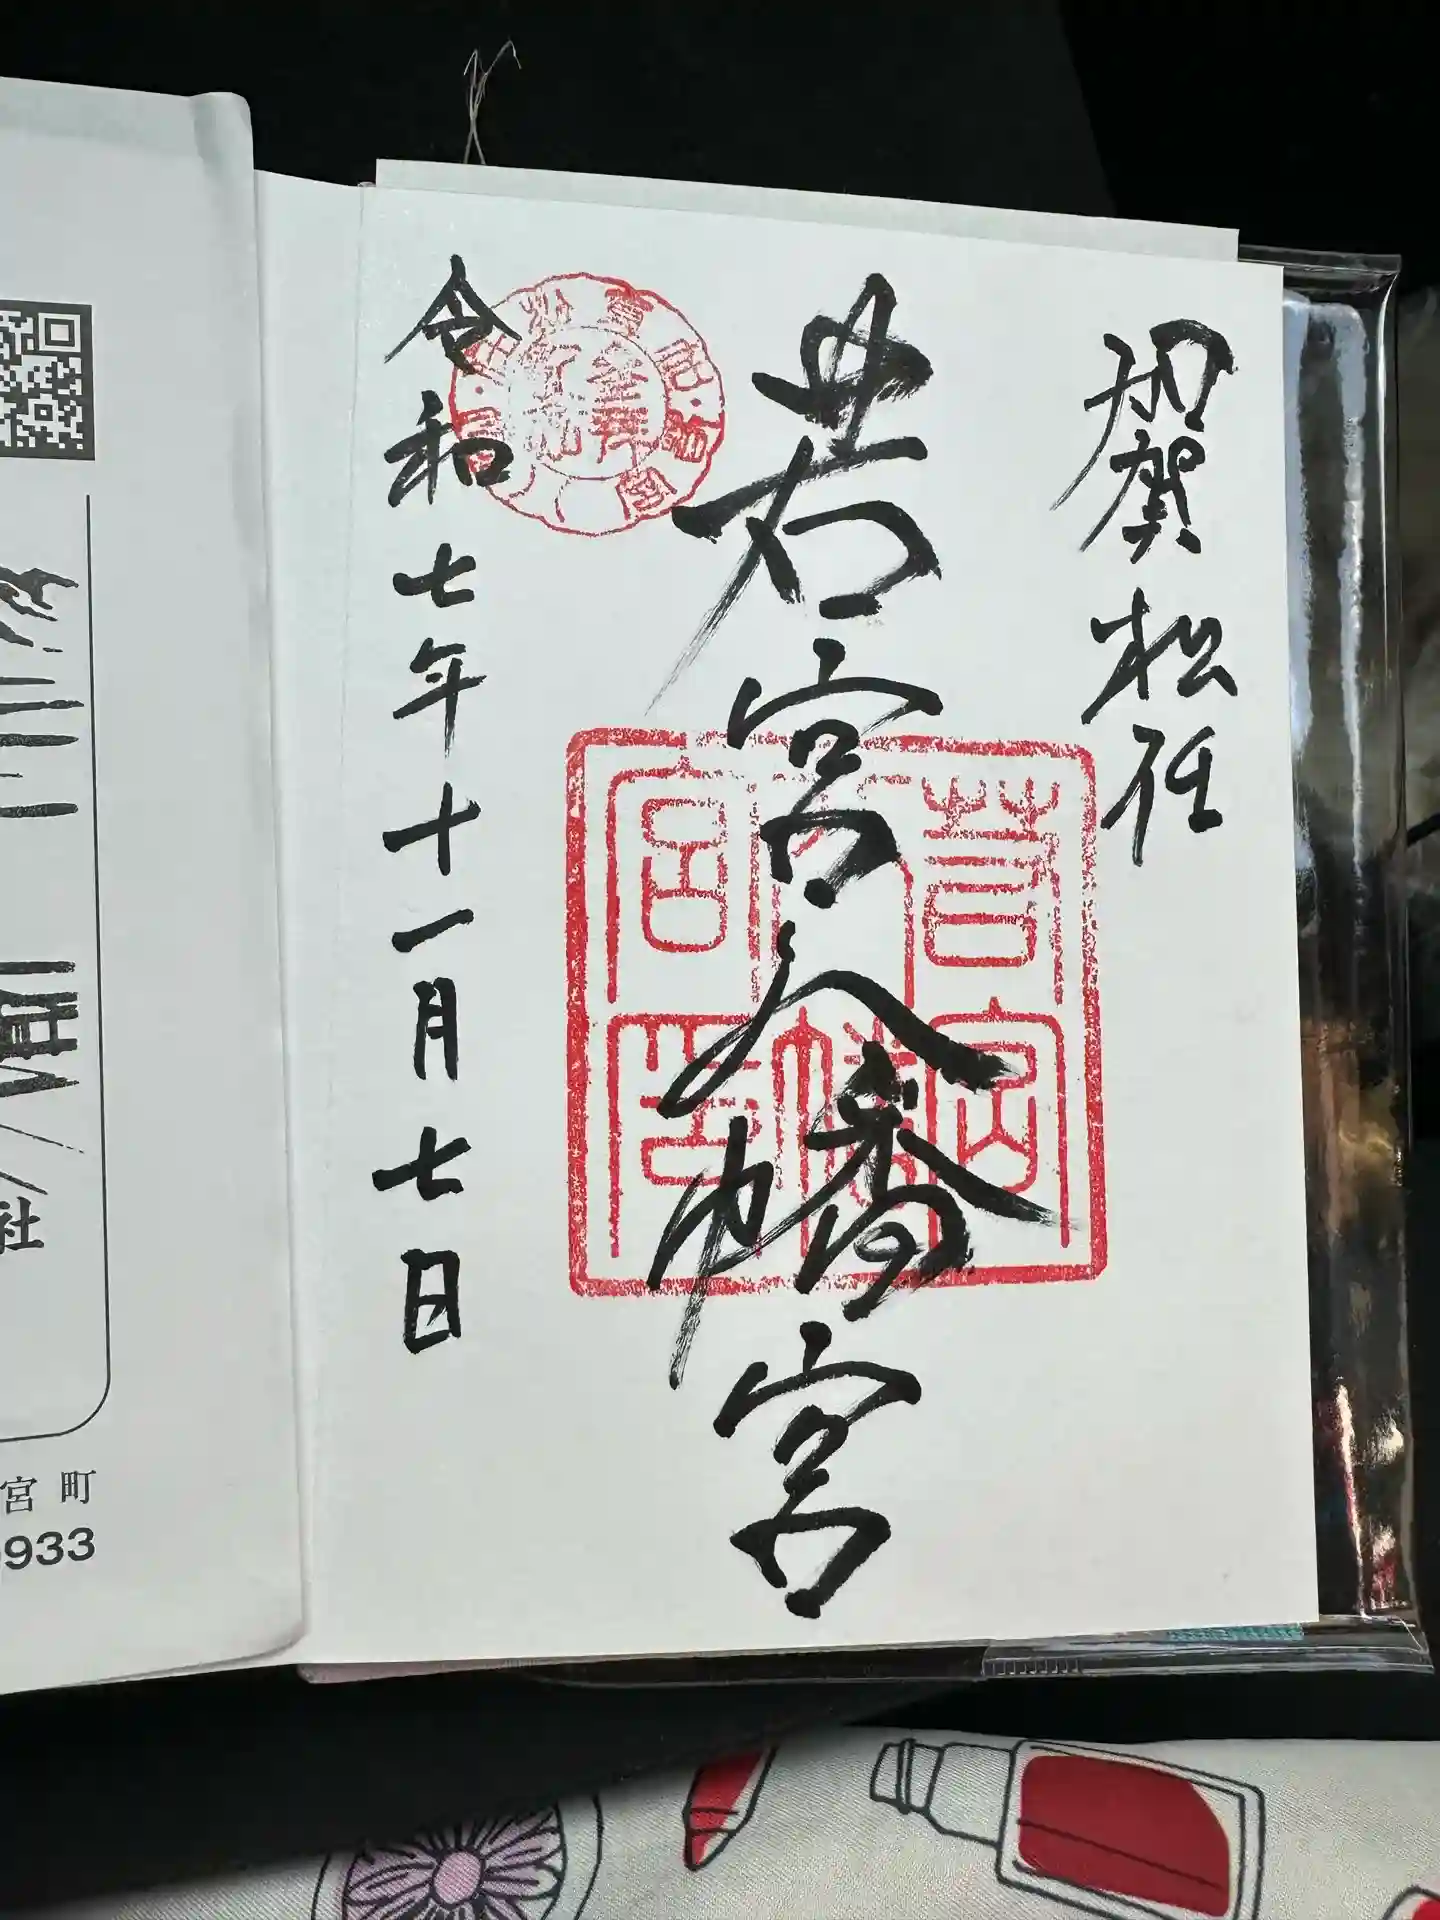 加賀松任
若宮八幡宮
令和七年十一月七日
若宮
八幡
宮印
社
宮町
933